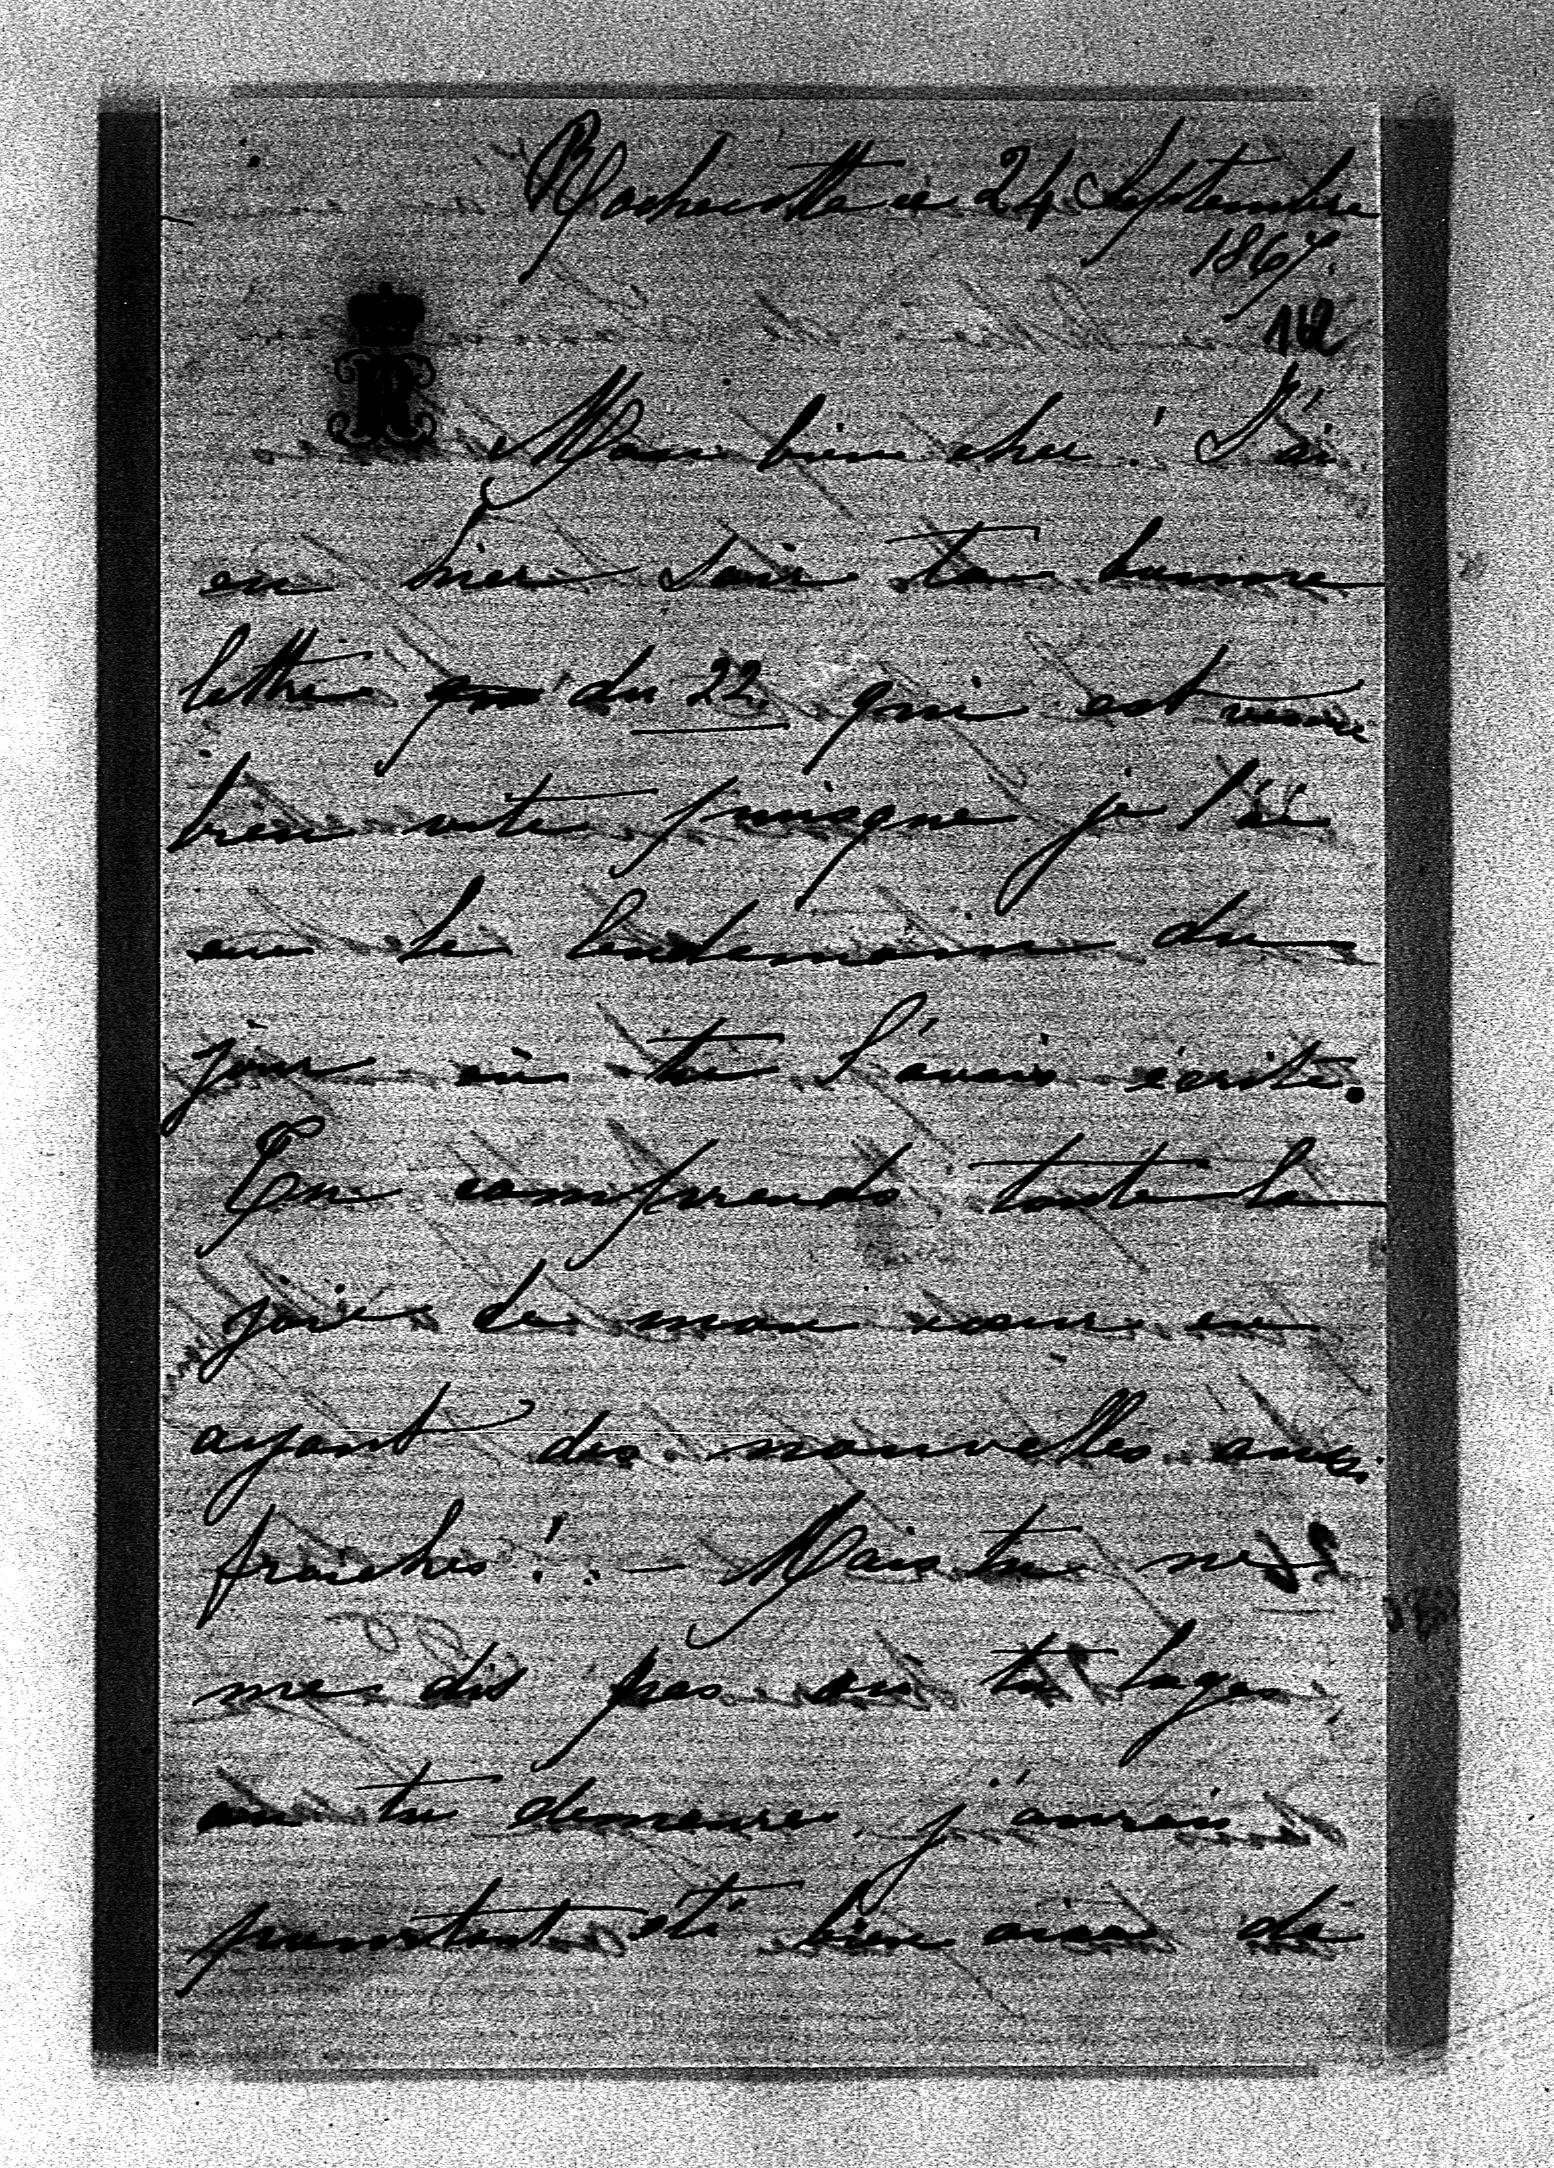 Rochecotte ce 24 Septembre
1867.
112
Mon bien cher ! J'ai
eu hier soir ta bonne
lettre du 22. qui est venue
bien vite puisque je l'ai
eu le lendemain du
jour où tu l'avais écrite.
Tu comprends toute la
joie de mon cœur en
ayant des nouvelles aussi
fraiches ! . — Mais tu ne
me dis pas où tu loges
ou tu demeures, j'aurais
pourtant été bien aise de